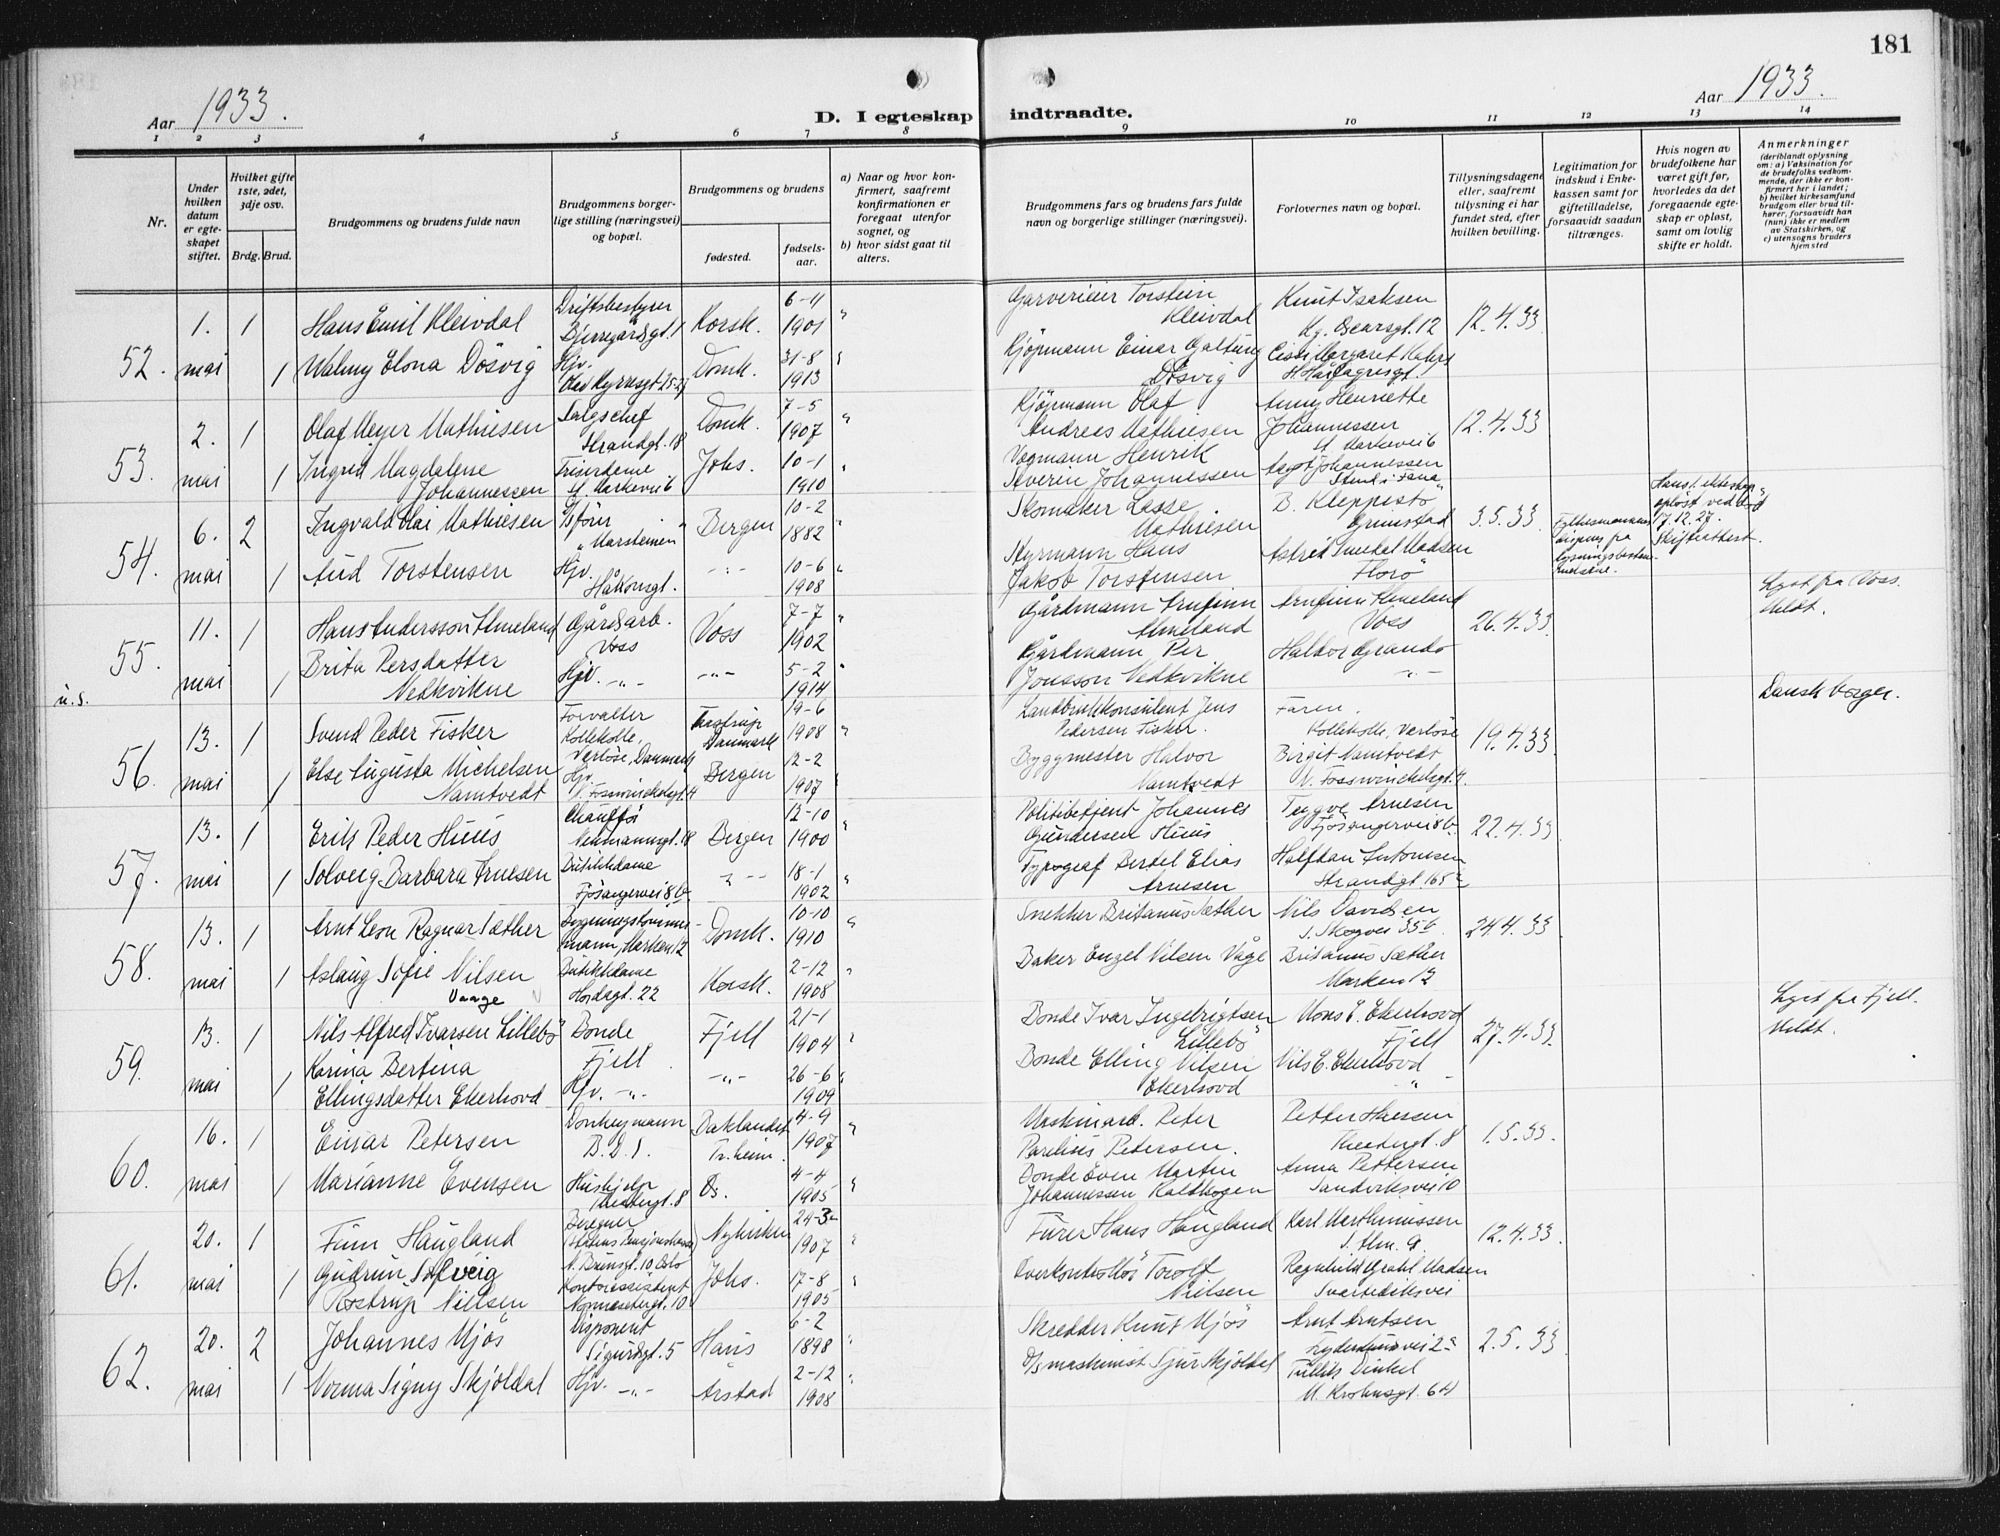 181
Aar 1933.
D. I egteskap indtraadte.
Aar 1933.
1 2 3 4 5 6 7 8 9 10 11 12 13 14
Nr.
Under hvilken datum er egte- skapet stiftet.
Hvilket gifte 1ste, 2det, 3dje osv.
Brdg. Brud.
Brudgommens og brudens fulde navn
Brudgommens borger- lige stilling (næringsvei) og bopæl.
Brudgommens og brudens
fødested.
fødsels- aar.
a) Naar og hvor kon- firmert, saafremt konfirmationen er foregaat utenfor sognet, og
b) hvor sidst gaat til alters.
Brudgommens fars og brudens fars fulde navn og borgerlige stillinger (næringsvei).
Forlovernes navn og bopæl.
Tillysningsdagene eller, saafremt tillysning ei har fundet sted, efter hvilken bevilling.
Legitimation for indskud i Enke- kassen samt for giftetilladelse, forsaavidt saadan tiltrænges.
Hvis nogen av brudefolkene har været gift før, hvorledes da det foregaaende egte- skap er opløst, samt om lovlig skifte er holdt.
Anmerkninger (deriblandt oplysning om: a) Vaksination for de brudefolks vedkom- mende, der ikke er kon- firmert her i landet; b) hvilket kirkesamfund brudgom eller brud til- hører, forsaavidt han (hun) ikke er medlem av Statskirken, og c) utensogns bruders hjemsted
52. 1. mai 1 Hans Emil Kleivdal Driftsbestyrer Bjerregårdsgt. 1 Korsk. 6-11 1901 " Garverieier Torstein Kleivdal Knut Isaksen Kg. Oscarsgt. 12 12.4.33
1 Walmy Elona Døsvig Hjv. Olav Kyrresgt. 25-27 Domk. 31-8 1913 " Kjøpmann Einar Galtung Døsvig Margaret H. Hårfagresgt.
53. 2. mai 1 Olaf Meyer Mathiesen Salgschef Strandgt. 18 Domk. 7-5 1907 " Kjøpmann Olaf Andreas Mathiesen Anny Henriette Johannessen St. Markevei 6 12.4.33
1 Ingrid Magdalene Johannessen Frisørdame St. Markevei 6 Johs. 10-1 1910 " Vognmann Henrik Severin Johannessen Aagot Johannessen Stend i Fana
54. 6. mai 2 Ingvald Olai Mathiesen D/sfører "Marsteinen" Bergen 10-2 1882 " Skomaker Lasse Mathiesen B. Kleppestø Grimstad 3.5.33 Fylkesmannens dispens fra Hans 1. ekteskap opløst ved død 17.12.27. Skifteattest.
1 Aud Torstensen Hjv. Håkonsgt. -"- 10-6 1908 " Styrmann Hans Jakob Torstensen Astrid Smedal Madsen "Florø"
55. 11. mai 1 Hans Andersson Almeland Gårdsarb. Voss Voss 7-7 1902 " Gårdmann Arnfinn Almeland Arnfinn Almeland Voss 26.4.33 Lyst fra Voss. Meldt.
u.s. 1 Brita Persdatter Nedkvikne Hjv. -"- -"- 5-2 1914 " Gårdmann Per Jonasson Nedkvikne Haldor Grando -"-
56. 13. mai 1 Svend Peder Fisker Forvalter Kollekolle, Verløse, Danmark Taastrup Danmark 19-6 1908 " Landbrukskonsulent Jens Pedersen Fisker. Faren. Kollekolle, Verløse 19.4.33 Dansk borger.
1 Else Augusta Michelsen Namtvedt Hjv. N. Fosswinckelsgt. 4 Bergen 12-2 1907 " Byggmester Halvor Namtvedt Birgit Namtvedt N. Fosswinckelsgt. 4.
57. 13. mai 1 Erik Peder Huus Chauffør Neumannsgt. 18 Bergen 12-10 1900 " Politibetjent Johannes Gundersen Huus Trygve Arnesen Fjøsangervei 8b. 22.4.33
1 Solveig Barbara Arnesen Butikkdame Fjøsangervei 8b. -"- 18-1 1902 " Typograf Bertel Elias Arnesen Halfdan Antonsen Strandgt. 165
58. 13. mai 1 Arnt Leon Ragnar Sæther Bygningstømmer- mann, Marken 12 Domk. 10-10 1910 " Snekker Britanus Sæther Nils Davidsen S. Skogvei 35b. 24.4.33
1 Aslaug Sofie Nilsen Vaage Butikkdame Hordagt. 22 Korsk. 2-12 1908 " Baker Engel Nilsen Våge Britanus Sæther Marken 12
59. 13. mai 1 Nils Alfred Ivarsen Lillebø Bonde Fjell Fjell 21-1 1904 " Bonde Ivar Ingebrigtsen Lillebø Mons E. Ekerhovd Fjell 27.4.33 Lyst fra Fjell. Meldt.
1 Karina Bertina Ellingsdatter Ekerhovd Hjv. -"- -"- 26-6 1909 " Bonde Elling Nilsen Ekerhovd Nils E. Ekerhovd -"-
60. 16. mai 1 Einar Petersen Donkeymann B.D.S. Baklandet Tr.heim. 4-9 1907 " Maskinarb. Peter Parelius Petersen. Petter Hansen Theatergt. 8 1.5.33.
1 Marianne Evensen Hushjelp Theatergt. 8 Os. 4-4 1905 " Bonde Even Martin Johannessen Kaldhagen Anna Pettersen Sandviksvei 10
61. 20. mai 1 Finn Haugland Beregner (Statens Pensjonskasse) N. Brunsgt. 10 Oslo Nykirken 24-3- 1907 " Fører Hans Haugland Karl Marthinussen S. Alm. 9 12.4.33
1 Gudrun Solveig Rostrup Nielsen Kontorassistent Nonnesetergt. 10 Johs. 17-8 1905 " Overkontrollør Torolf Nielsen Ragnhild Grahl Madsen Svartediksvei
62. 20. mai 2 Johannes Mjøs Disponent Sigurdsgt. 5 Haus 6-2 1898 " Skredder Knut Mjøs Arnt Arntsen 2.5.33
1 Norma Signy Skjoldal Hjv. -"- Årstad 2-12 1908 " D/s maskinist Sjur Skjoldal Dinkel M. Krohnsgt. 64